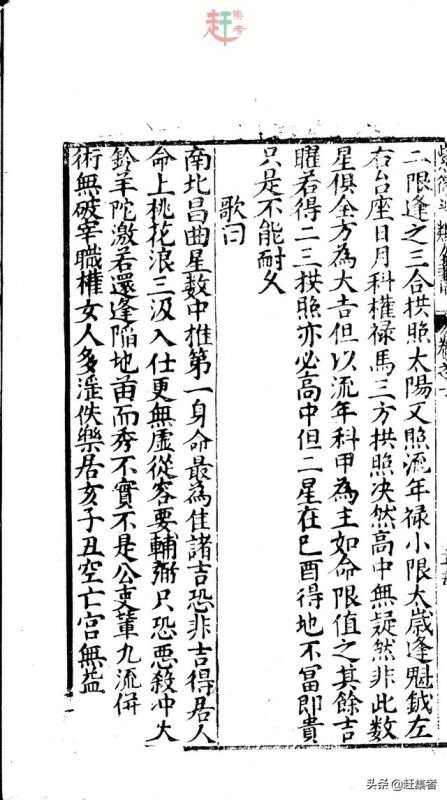 赶集者
二限逢之三合拱照太陽又照流年禄小限太歲逢魁鉞左
右台座日月科權禄馬三方拱照决然高中無疑然非此數
星俱全方為大吉但以流年科甲為主如命限值之其餘吉
曜若得二三拱照亦必高中但二星在巳酉得地不冨即貴
只是不能耐久
歌曰
南北昌曲星数中推第一身命最為佳諸吉恐非吉得居人
命上桃花浪三汲入仕更無虚從容要輔弼只恐悪殺冲火
鈴羊陀激若還逢陥地苗而秀不實不是公吏輩九流併
術無破宰職權女人多淫佚樂居亥子丑空亡宫無益
头条 @赶集者